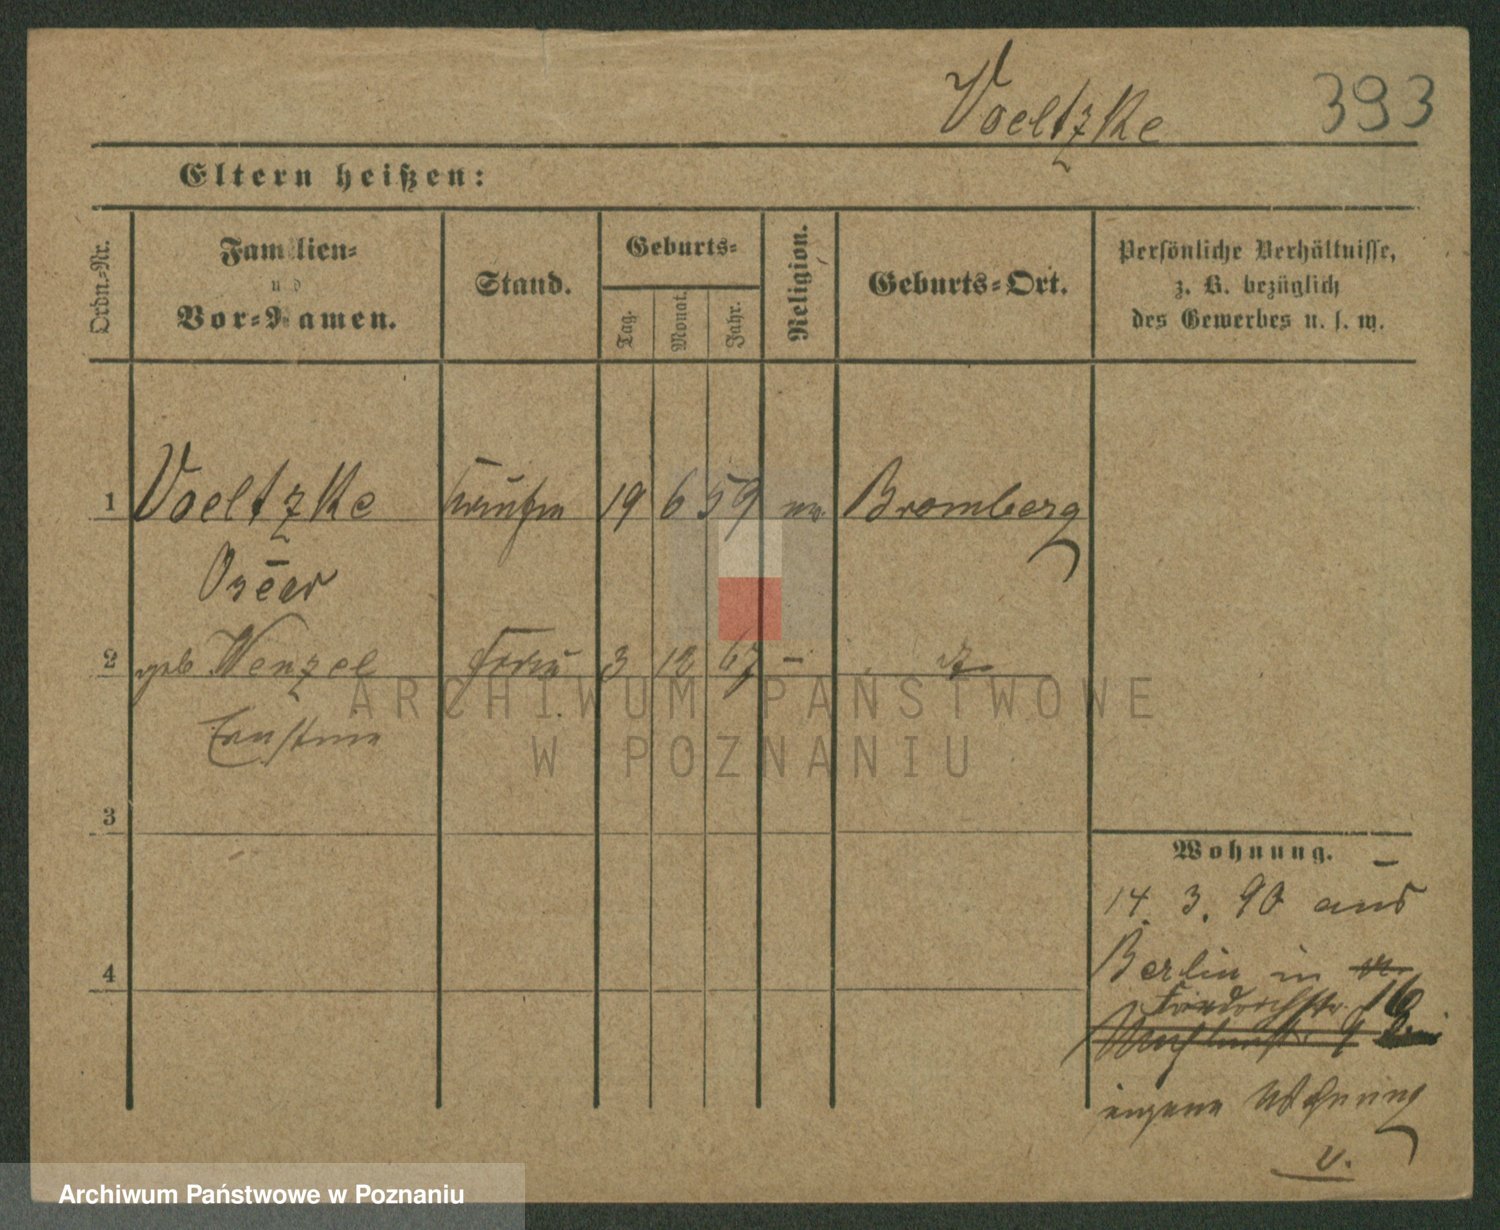 Voeltzke 393
Eltern heißen:
Ordn.-Nr.
Familien-
und
Vor-Namen.
Stand.
Geburts-
Tag.
Monat.
Jahr.
Religion.
Geburts-Ort.
Persönliche Verhältnisse,
z. B. bezüglich
des Gewerbes u. s. w.
1 Voeltzke Kaufm 19 6 59 ev Bromberg
Oscar
2 geb Wenzel Frau 3 12 67 –
Ernstine
ARCHIWUM PAŃSTWOWE
W POZNANIU
3
Wohnung.
14. 3. 90 aus
4
Berlin in
Friedrichstr. 16
eigene Wohnung
v.
Archiwum Państwowe w Poznaniu